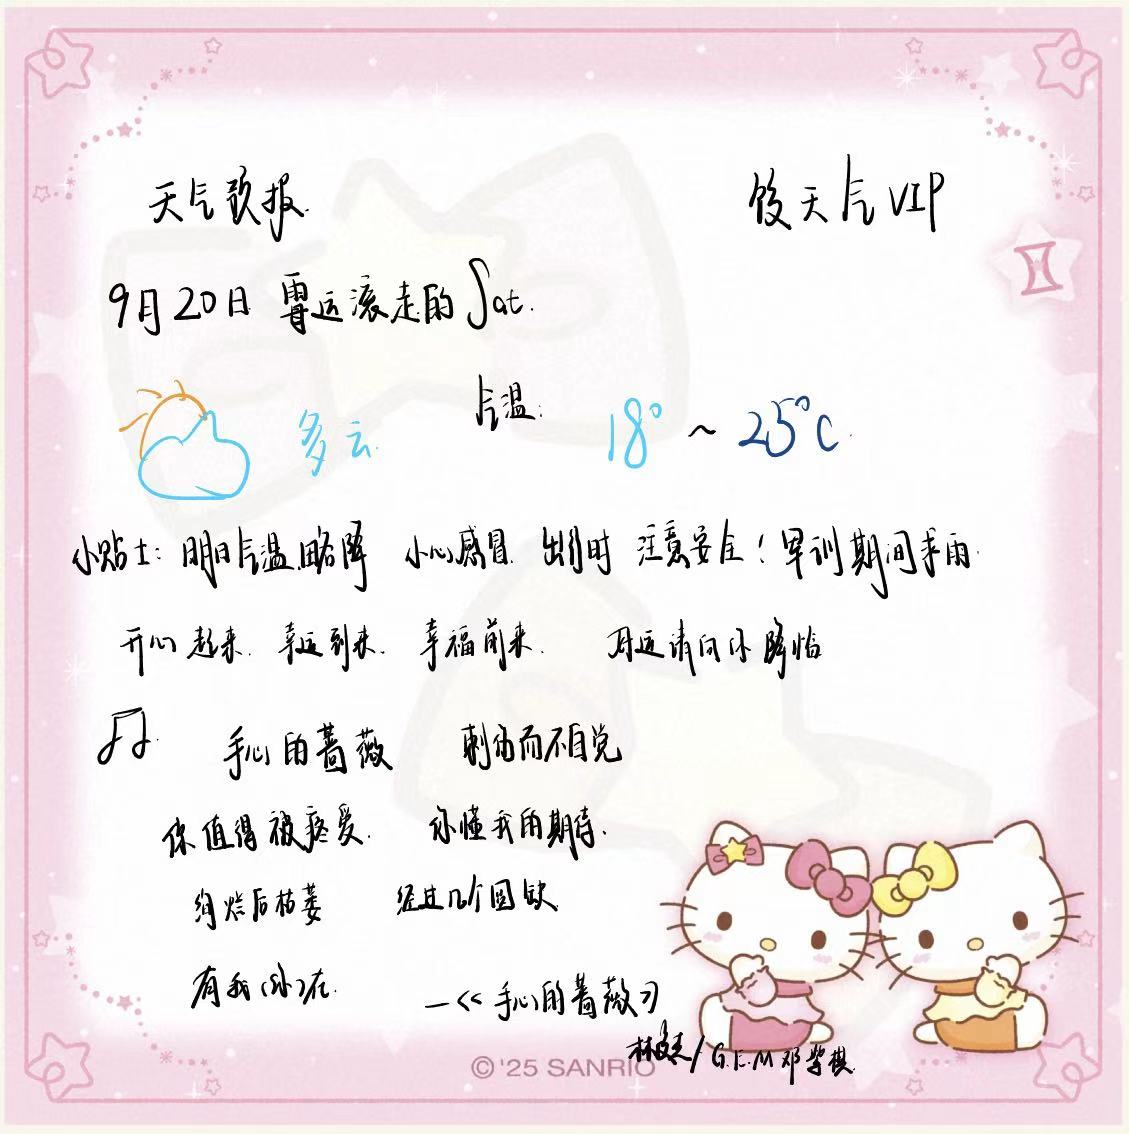 天气预报 饺天气VIP
9月20日 霉运滚走的Sat.
多云 气温: 18° ~ 25°C
小贴士: 明日气温略降 小心感冒 出行时 注意安全! 早训期间求雨
开心起来. 幸运到来. 幸福前来. 好运请向你降临
手心的蔷薇 刺伤而不自觉
你值得被疼爱. 你懂我的期待.
绚烂后枯萎 经过几个圆缺
有我(你)在.
—《手心的蔷薇》
林俊杰/G.E.M邓紫棋
©'25 SANRIO